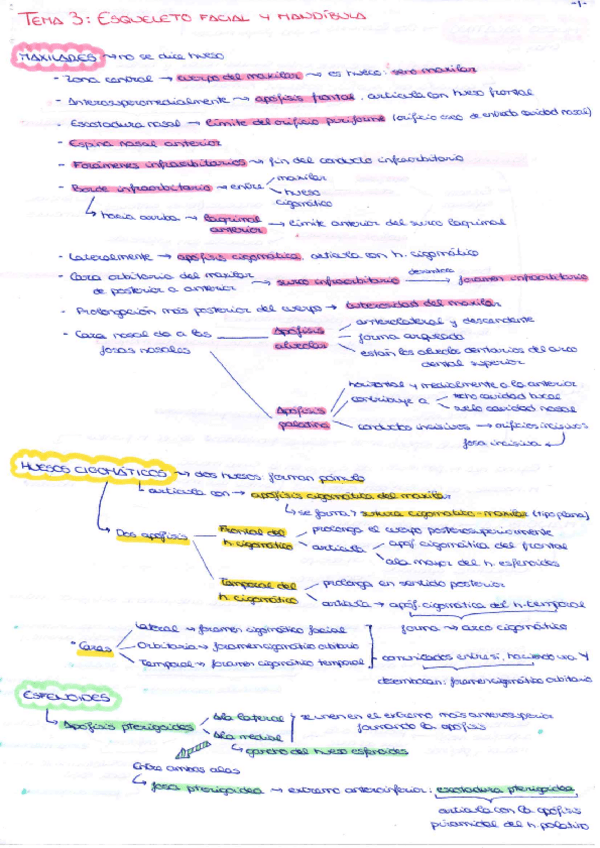 -1-
TEMA 3: ESQUELETO FACIAL Y MANDÍBULA
MAXILARES → no se dice hueso
- Zona central → cuerpo del maxilar → es hueco: seno maxilar
- Anterosuperomedialmente → apófisis frontal, articula con hueso frontal
- Escotadura nasal → límite del orificio piriforme (orificio óseo de entrada cavidad nasal)
- Espina nasal anterior
- Forámenes infraorbitarios → fin del conducto infraorbitario
- Borde infraorbitario → entre
maxilar
hueso
cigomático
hacia arriba → lagrimal anterior → límite anterior del surco lagrimal
- Lateralmente → apófisis cigomática, articula con h. cigomático
- Cara orbitaria del maxilar de posterior a anterior → surco infraorbitario → foramen infraorbitario
- Prolongación más posterior del cuerpo → tuberosidad del maxilar
- Cara nasal da a las fosas nasales
Apófisis alveolar
anterolateral y descendente
forma arqueada
están los alveolos dentarios del arco dental superior
Apófisis palatina
horizontal y medialmente a la anterior
contribuye a
techo cavidad bucal
suelo cavidad nasal
conductos incisivos → orificios incisivos
fosa incisiva
HUESOS CIGOMÁTICOS → dos huesos forman pómulo
articula con → apófisis cigomática del maxilar
se forma → sutura cigomático-maxilar (tipo plana)
Dos apófisis
Frontal del h. cigomático
prolonga el cuerpo posterosuperiormente
articula
apóf. cigomática del frontal
ala mayor del h. esfenoides
Temporal del h. cigomático
prolonga en sentido posterior
articula → apóf. cigomática del h. temporal
forma → arco cigomático
Caras
Lateral → foramen cigomático facial
Orbitaria → foramen cigomático orbitario
Temporal → foramen cigomático temporal
comunicados entre sí, haciendo una Y
desembocan: foramen cigomático orbitario
ESFENOIDES
Apófisis pterigoides
Ala lateral
Ala medial
se unen en el extremo más anterosuperior formando la apófisis
gancho del hueso esfenoides
Entre ambas alas
fosa pterigoidea → extremo anteroinferior: escotadura pterigoidea
articula con la apófisis
piramidal del h. palatino